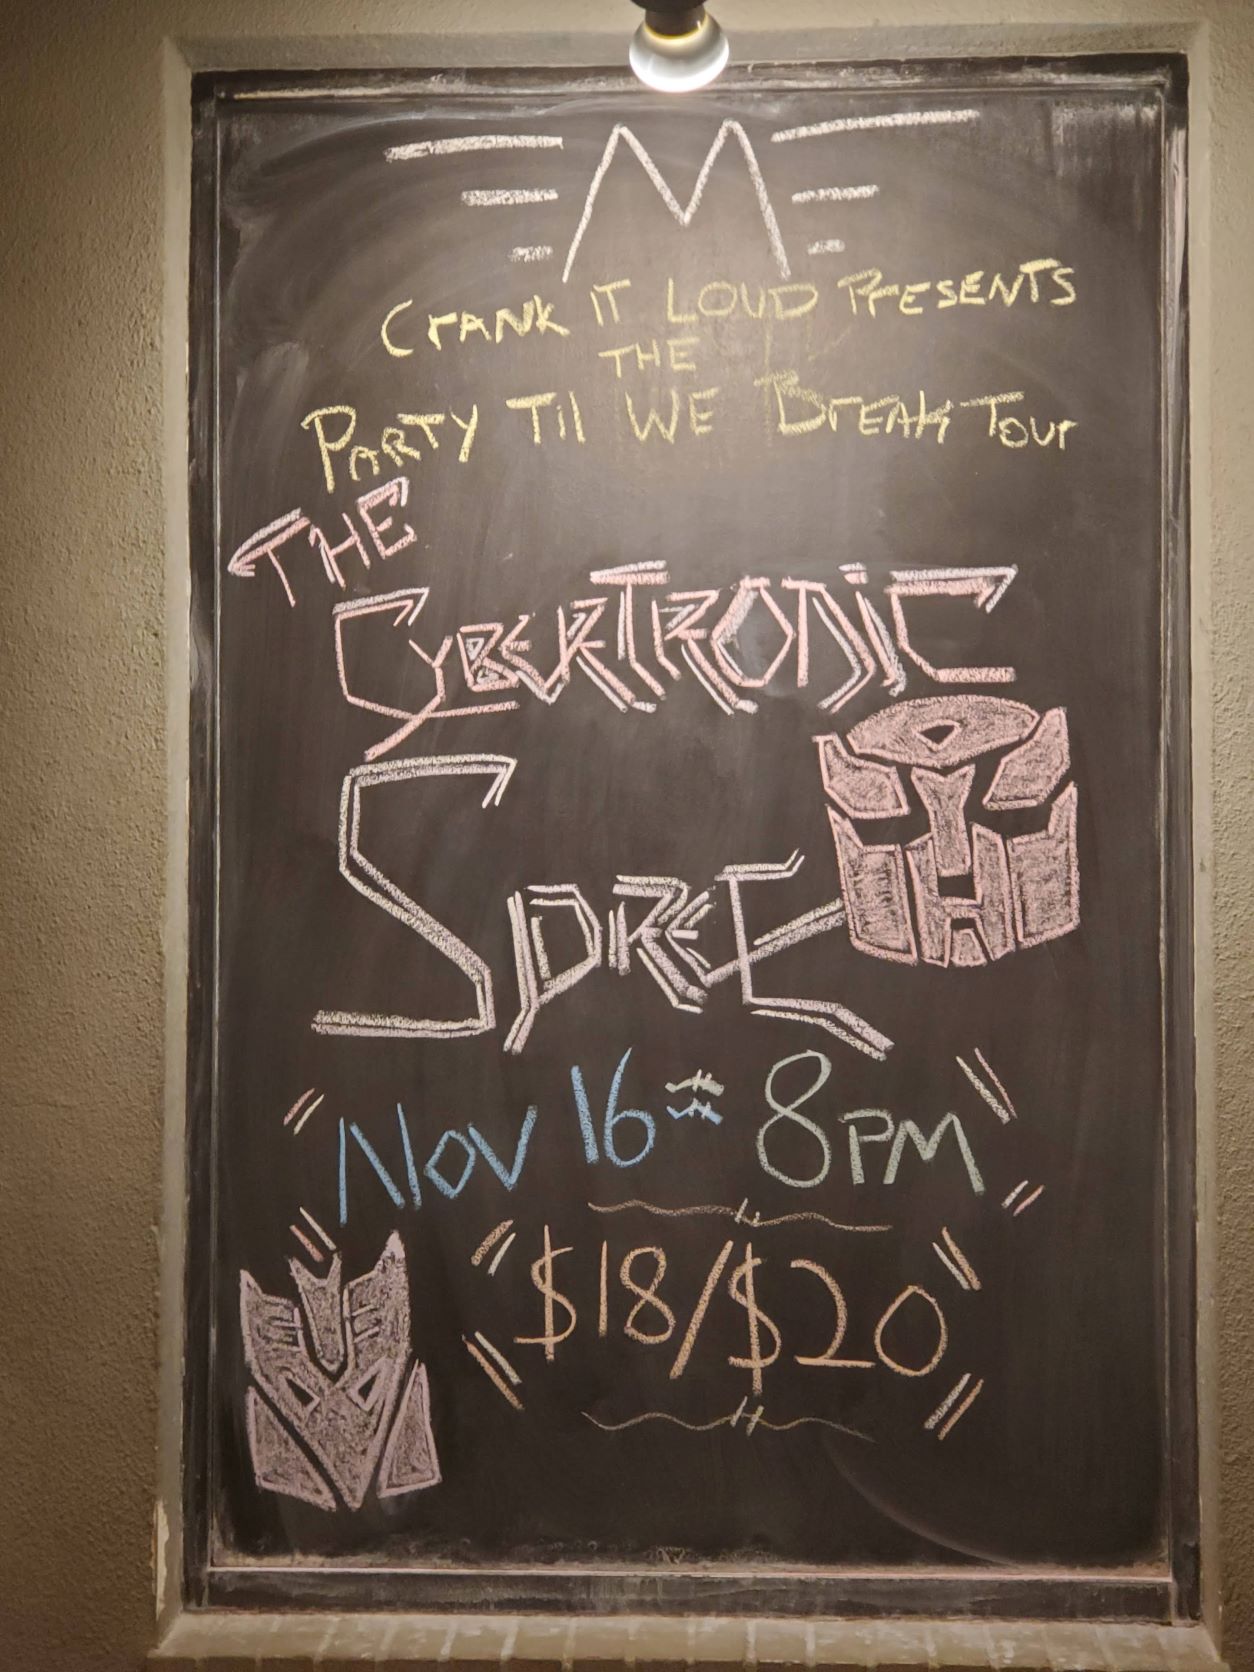 M
Crank It Loud Presents
The
Party Til We Break Tour
The
Cybertronic
Spree
Nov 16 8PM
$18/$20